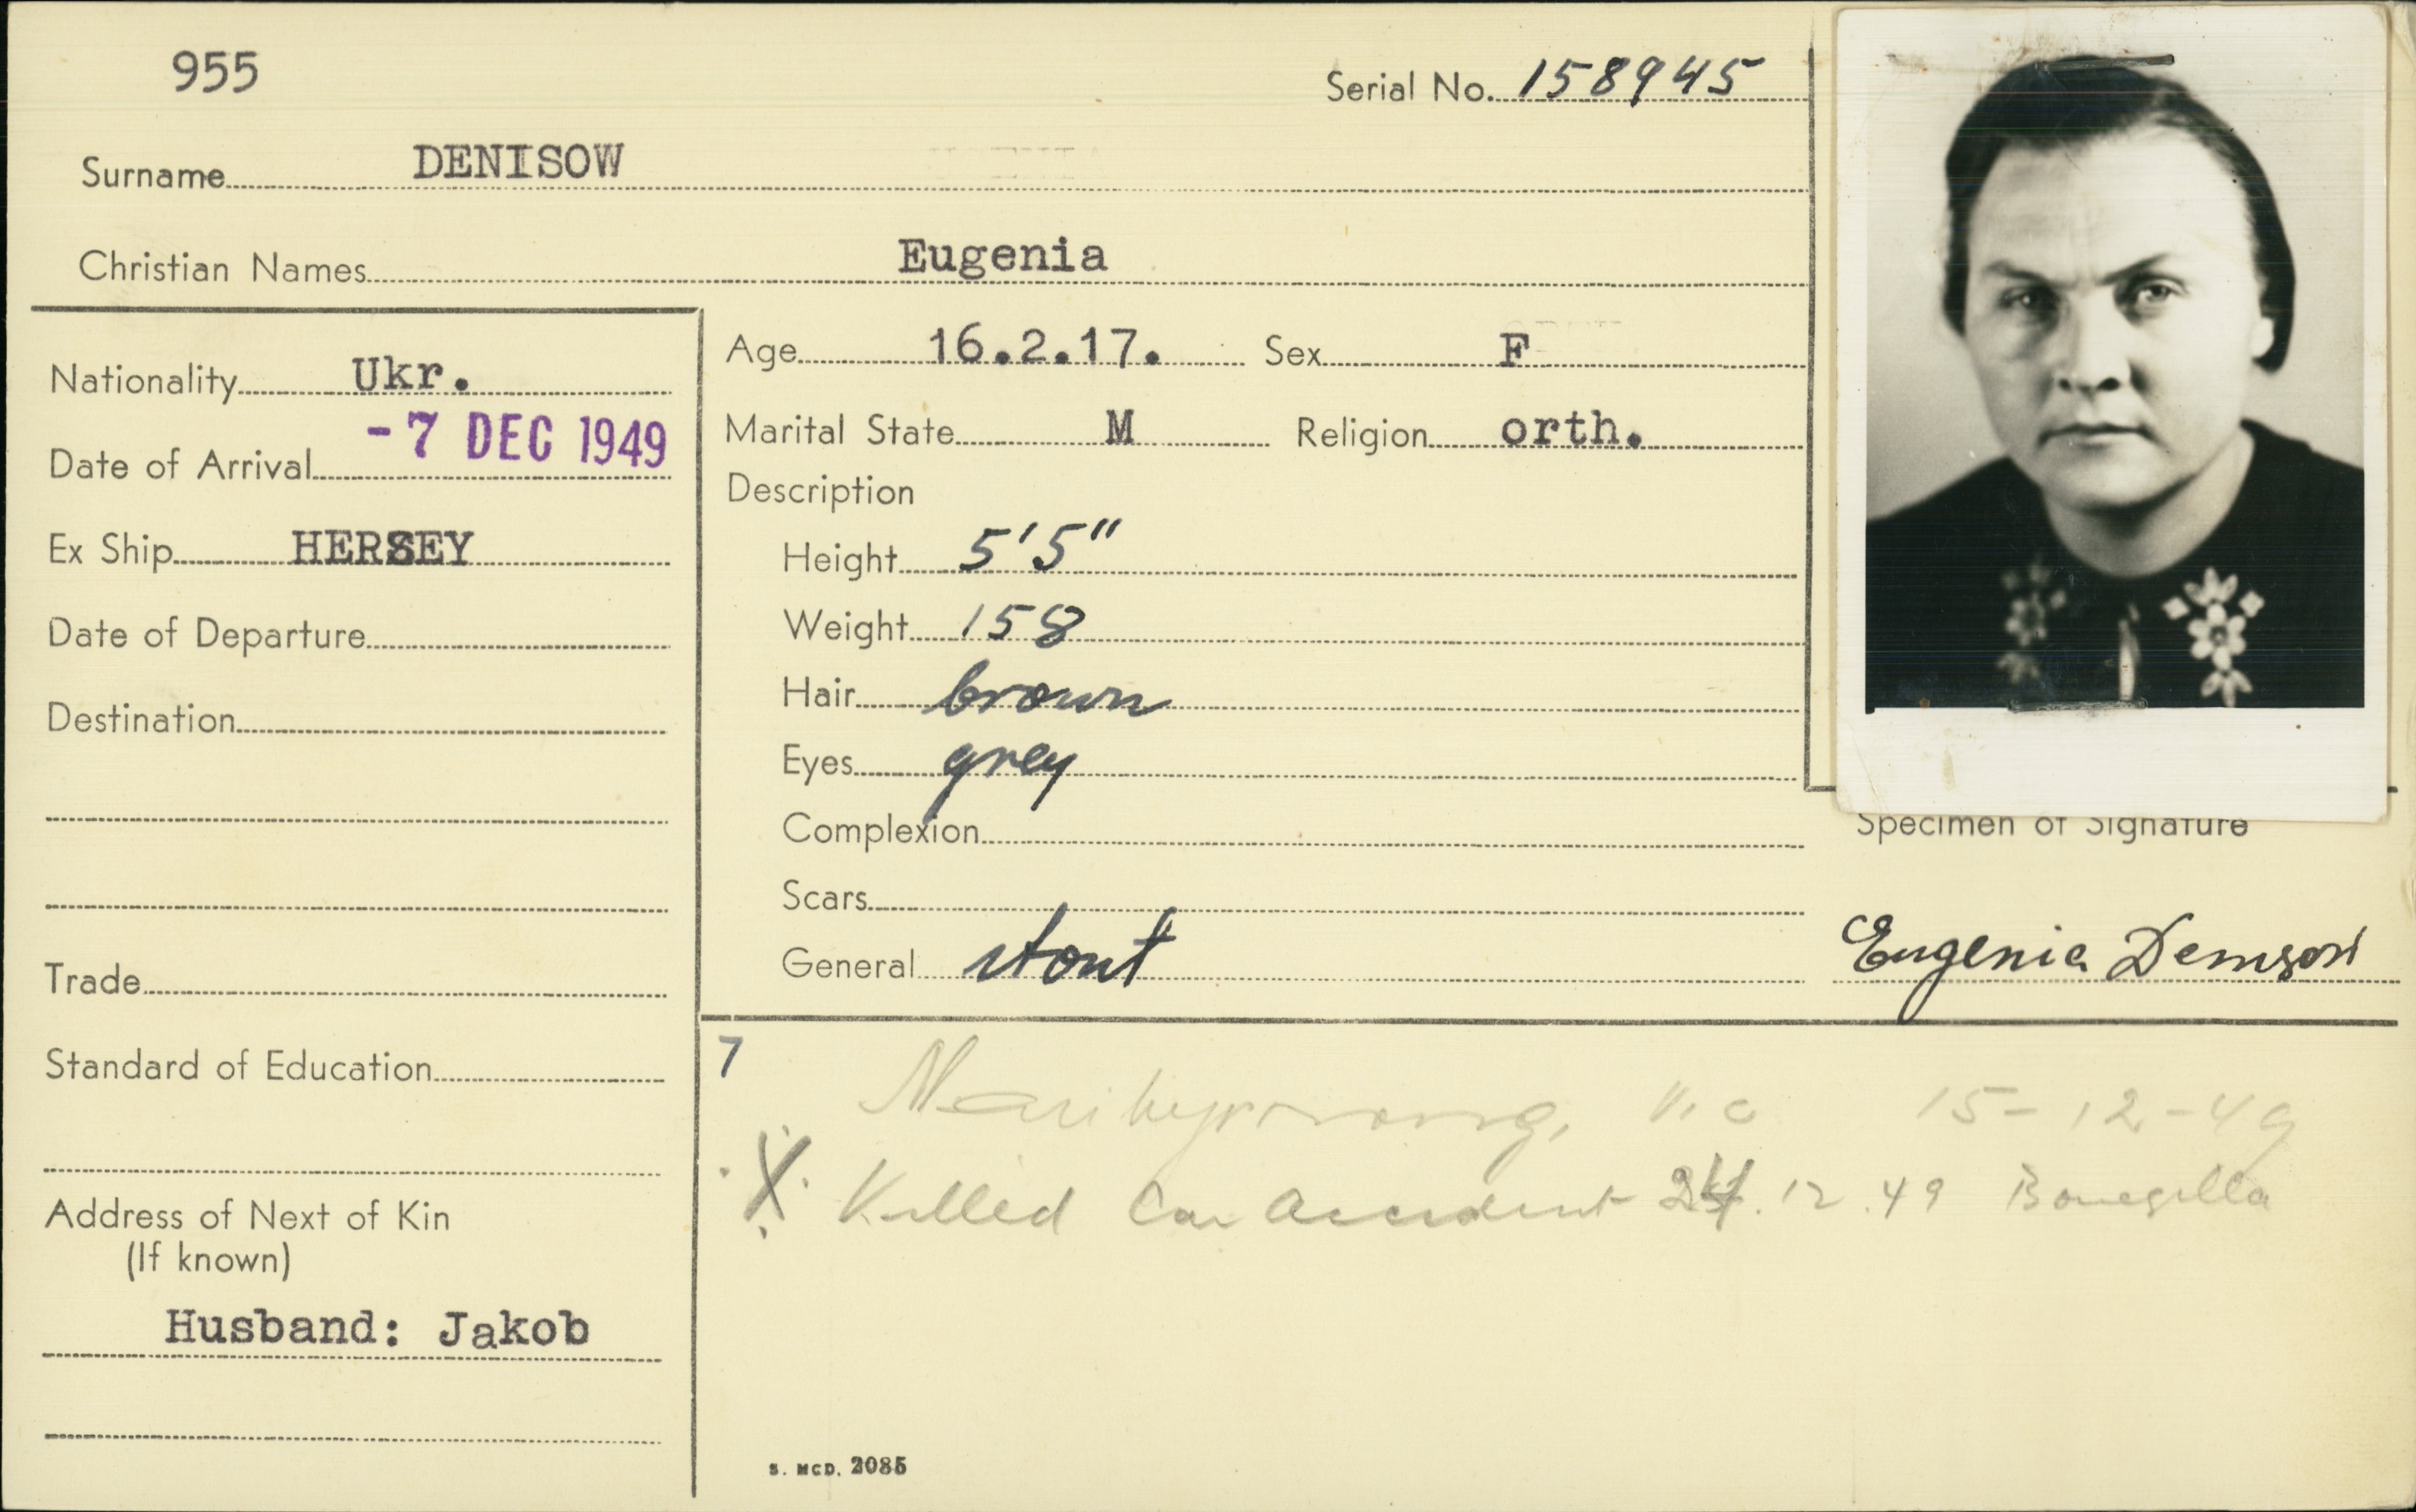 955
Serial No. 158945
Surname DENISOW
Christian Names Eugenia
Nationality Ukr.
Date of Arrival -7 DEC 1949
Ex Ship HERSEY
Date of Departure
Destination
Trade
Standard of Education
Address of Next of Kin
(If known)
Husband: Jakob
Age 16.2.17. Sex F
Marital State M Religion orth.
Description
Height 5'5"
Weight 158
Hair brown
Eyes grey
Complexion
Scars
General stout
Specimen of Signature
Eugenia Denisow
7
Vic 15-12-49
X Killed Car Accident 12.49 Bonegilla
S. MCD. 2085